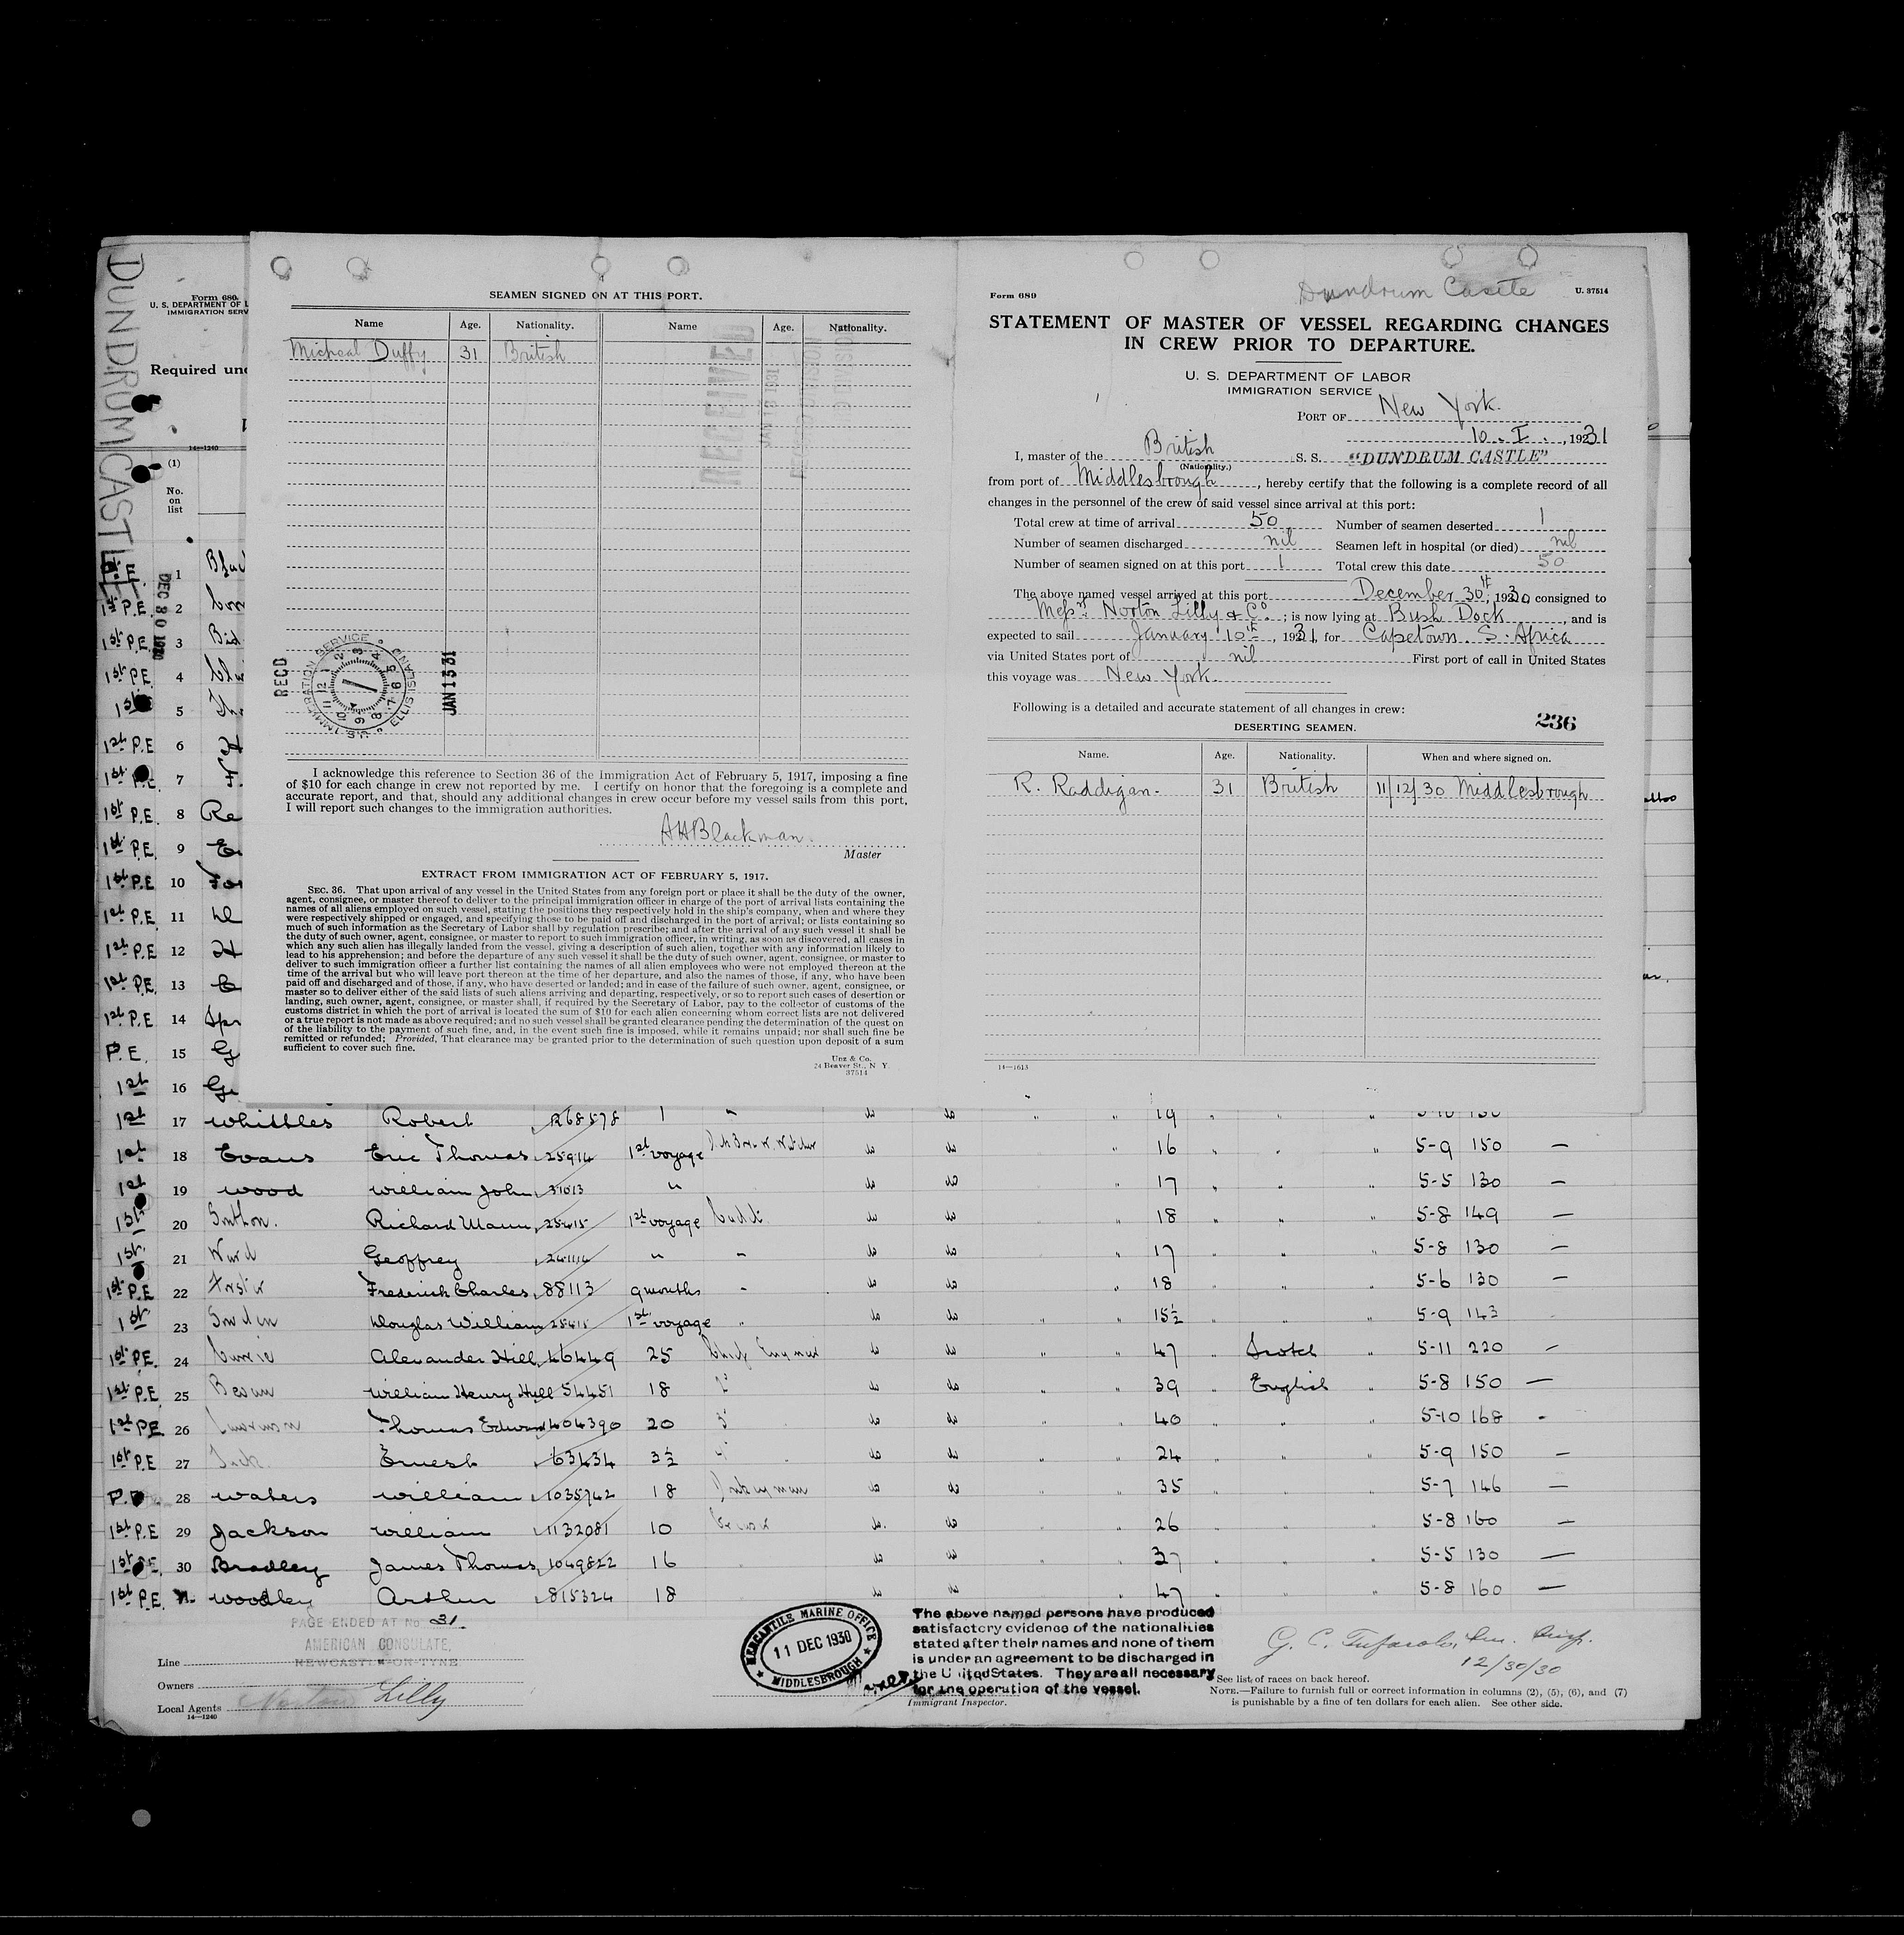 DUNDRUM CASTLE
Form 680
U. S. DEPARTMENT OF L
IMMIGRATION SERV
Required und
14—1240
(1)
No.
on
list
DEC 30 1930
SEAMEN SIGNED ON AT THIS PORT.
Name Age. Nationality. Name Age. Nationality.
Micheal Duffy 31 British
RECEIVED
REC'D
U.S. IMMIGRATION SERVICE ELLIS ISLAND
JAN 13 31
I acknowledge this reference to Section 36 of the Immigration Act of February 5, 1917, imposing a fine
of $10 for each change in crew not reported by me. I certify on honor that the foregoing is a complete and
accurate report, and that, should any additional changes in crew occur before my vessel sails from this port,
I will report such changes to the immigration authorities.
AHBlackman.
Master
EXTRACT FROM IMMIGRATION ACT OF FEBRUARY 5, 1917.
SEC. 36. That upon arrival of any vessel in the United States from any foreign port or place it shall be the duty of the owner,
agent, consignee, or master thereof to deliver to the principal immigration officer in charge of the port of arrival lists containing the
names of all aliens employed on such vessel, stating the positions they respectively hold in the ship's company, when and where they
were respectively shipped or engaged, and specifying those to be paid off and discharged in the port of arrival; or lists containing so
much of such information as the Secretary of Labor shall by regulation prescribe; and after the arrival of any such vessel it shall be
the duty of such owner, agent, consignee, or master to report to such immigration officer, in writing, as soon as discovered, all cases in
which any such alien has illegally landed from the vessel, giving a description of such alien, together with any information likely to
lead to his apprehension; and before the departure of any such vessel it shall be the duty of such owner, agent, consignee, or master to
deliver to such immigration officer a further list containing the names of all alien employees who were not employed thereon at the
time of the arrival but who will leave port thereon at the time of her departure, and also the names of those, if any, who have been
paid off and discharged and of those, if any, who have deserted or landed; and in case of the failure of such owner, agent, consignee, or
master so to deliver either of the said lists of such aliens arriving and departing, respectively, or so to report such cases of desertion or
landing, such owner, agent, consignee, or master shall, if required by the Secretary of Labor, pay to the collector of customs of the
customs district in which the port of arrival is located the sum of $10 for each alien concerning whom correct lists are not delivered
or a true report is not made as above required; and no such vessel shall be granted clearance pending the determination of the quest on
of the liability to the payment of such fine, and, in the event such fine is imposed, while it remains unpaid; nor shall such fine be
remitted or refunded; Provided, That clearance may be granted prior to the determination of such question upon deposit of a sum
sufficient to cover such fine.
Unz & Co.
24 Beaver St., N Y.
37514
Dundrum Castle
Form 689 U. 37514
STATEMENT OF MASTER OF VESSEL REGARDING CHANGES
IN CREW PRIOR TO DEPARTURE.
U. S. DEPARTMENT OF LABOR
IMMIGRATION SERVICE
PORT OF New York.
10. I. , 1931
I, master of the British S. S. "DUNDRUM CASTLE"
(Nationality.)
from port of Middlesbrough, hereby certify that the following is a complete record of all
changes in the personnel of the crew of said vessel since arrival at this port:
Total crew at time of arrival 50 Number of seamen deserted 1
Number of seamen discharged nil Seamen left in hospital (or died) nil
Number of seamen signed on at this port 1 Total crew this date 50
The above named vessel arrived at this port December 30th, 1930 consigned to
Messrs. Norton Lilly & Co. ; is now lying at Bush Dock, and is
expected to sail January 10th, 1931, for Capetown. S. Africa
via United States port of nil First port of call in United States
this voyage was New York.
Following is a detailed and accurate statement of all changes in crew:
DESERTING SEAMEN. 236
Name. Age. Nationality. When and where signed on.
R. Raddigan. 31 British 11/12/30 Middlesbrough
14—1613
P.E. 1
1st P.E. 2
1st P.E. 3
1st P.E. 4
1st 5
1st P.E 6
1st P.E. 7
1st P.E. 8 Re
1st P.E. 9
1st P.E 10
1st P.E. 11
1st P.E 12
1st P.E. 13
1st P.E 14
P.E. 15
1st 16
1st 17 Whittles Robert R68578 1 " do do " " 19 " " "
1st 18 Evans Eric Thomas 25914 1st voyage do do " 16 " " " 5-9 150 —
1st 19 Wood William John 31013 " do do " 17 " " " 5-5 130 —
1st 20 Richard Mann 25415 1st voyage Cadet do do " 18 " " " 5-8 149 —
1st 21 Ward Geoffrey 241114 " " do do " 17 " " " 5-8 130 —
1st P.E 22 Forster Frederick Charles 88113 9 months " do do " 18 " " 5-6 130 —
1st 23 Douglas William 25415 1st voyage " do do " " 15½ " " " 5-9 143
1st P.E. 24 Currie Alexander Hill 46449 25 Chief Engineer do do " " 47 " Scotch " 5-11 220 —
1st P.E 25 Bevan William Henry Hill 54451 18 2d do do " 39 " English " 5-8 150 —
1st P.E. 26 Thomas Edward 404390 20 3d do do " " 40 " " " 5-10 168 -
1st P.E 27 Ernest 63434 3½ 4 do do " " 24 " " " 5-9 150 —
P.E. 28 Waters William 1035742 18 Donkeyman do do " " 35 " " " 5-7 146 —
1st P.E 29 Jackson William 1132081 10 do. do " " 26 " " 5-8 160 —
1st P.E. 30 Bradley James Thomas 1049822 16 do do " " 37 " " " 5-5 130 —
1st P.E. Woodley Arthur 815324 18 do do " 47 " " 5-8 160 —
PAGE ENDED AT No. 31.
AMERICAN CONSULATE,
NEWCASTLE-ON-TYNE
Line
Owners
Local Agents Norton Lilly
14—1240
MERCANTILE MARINE OFFICE
11 DEC 1930
MIDDLESBROUGH
Immigrant Inspector.
The above named persons have produced
satisfactory evidence of the nationalities
stated after their names and none of them
is under an agreement to be discharged in
the United States. They are all necessary
for the operation of the vessel.
12/30/30
See list of races on back hereof.
NOTE.—Failure to furnish full or correct information in columns (2), (5), (6), and (7)
is punishable by a fine of ten dollars for each alien. See other side.